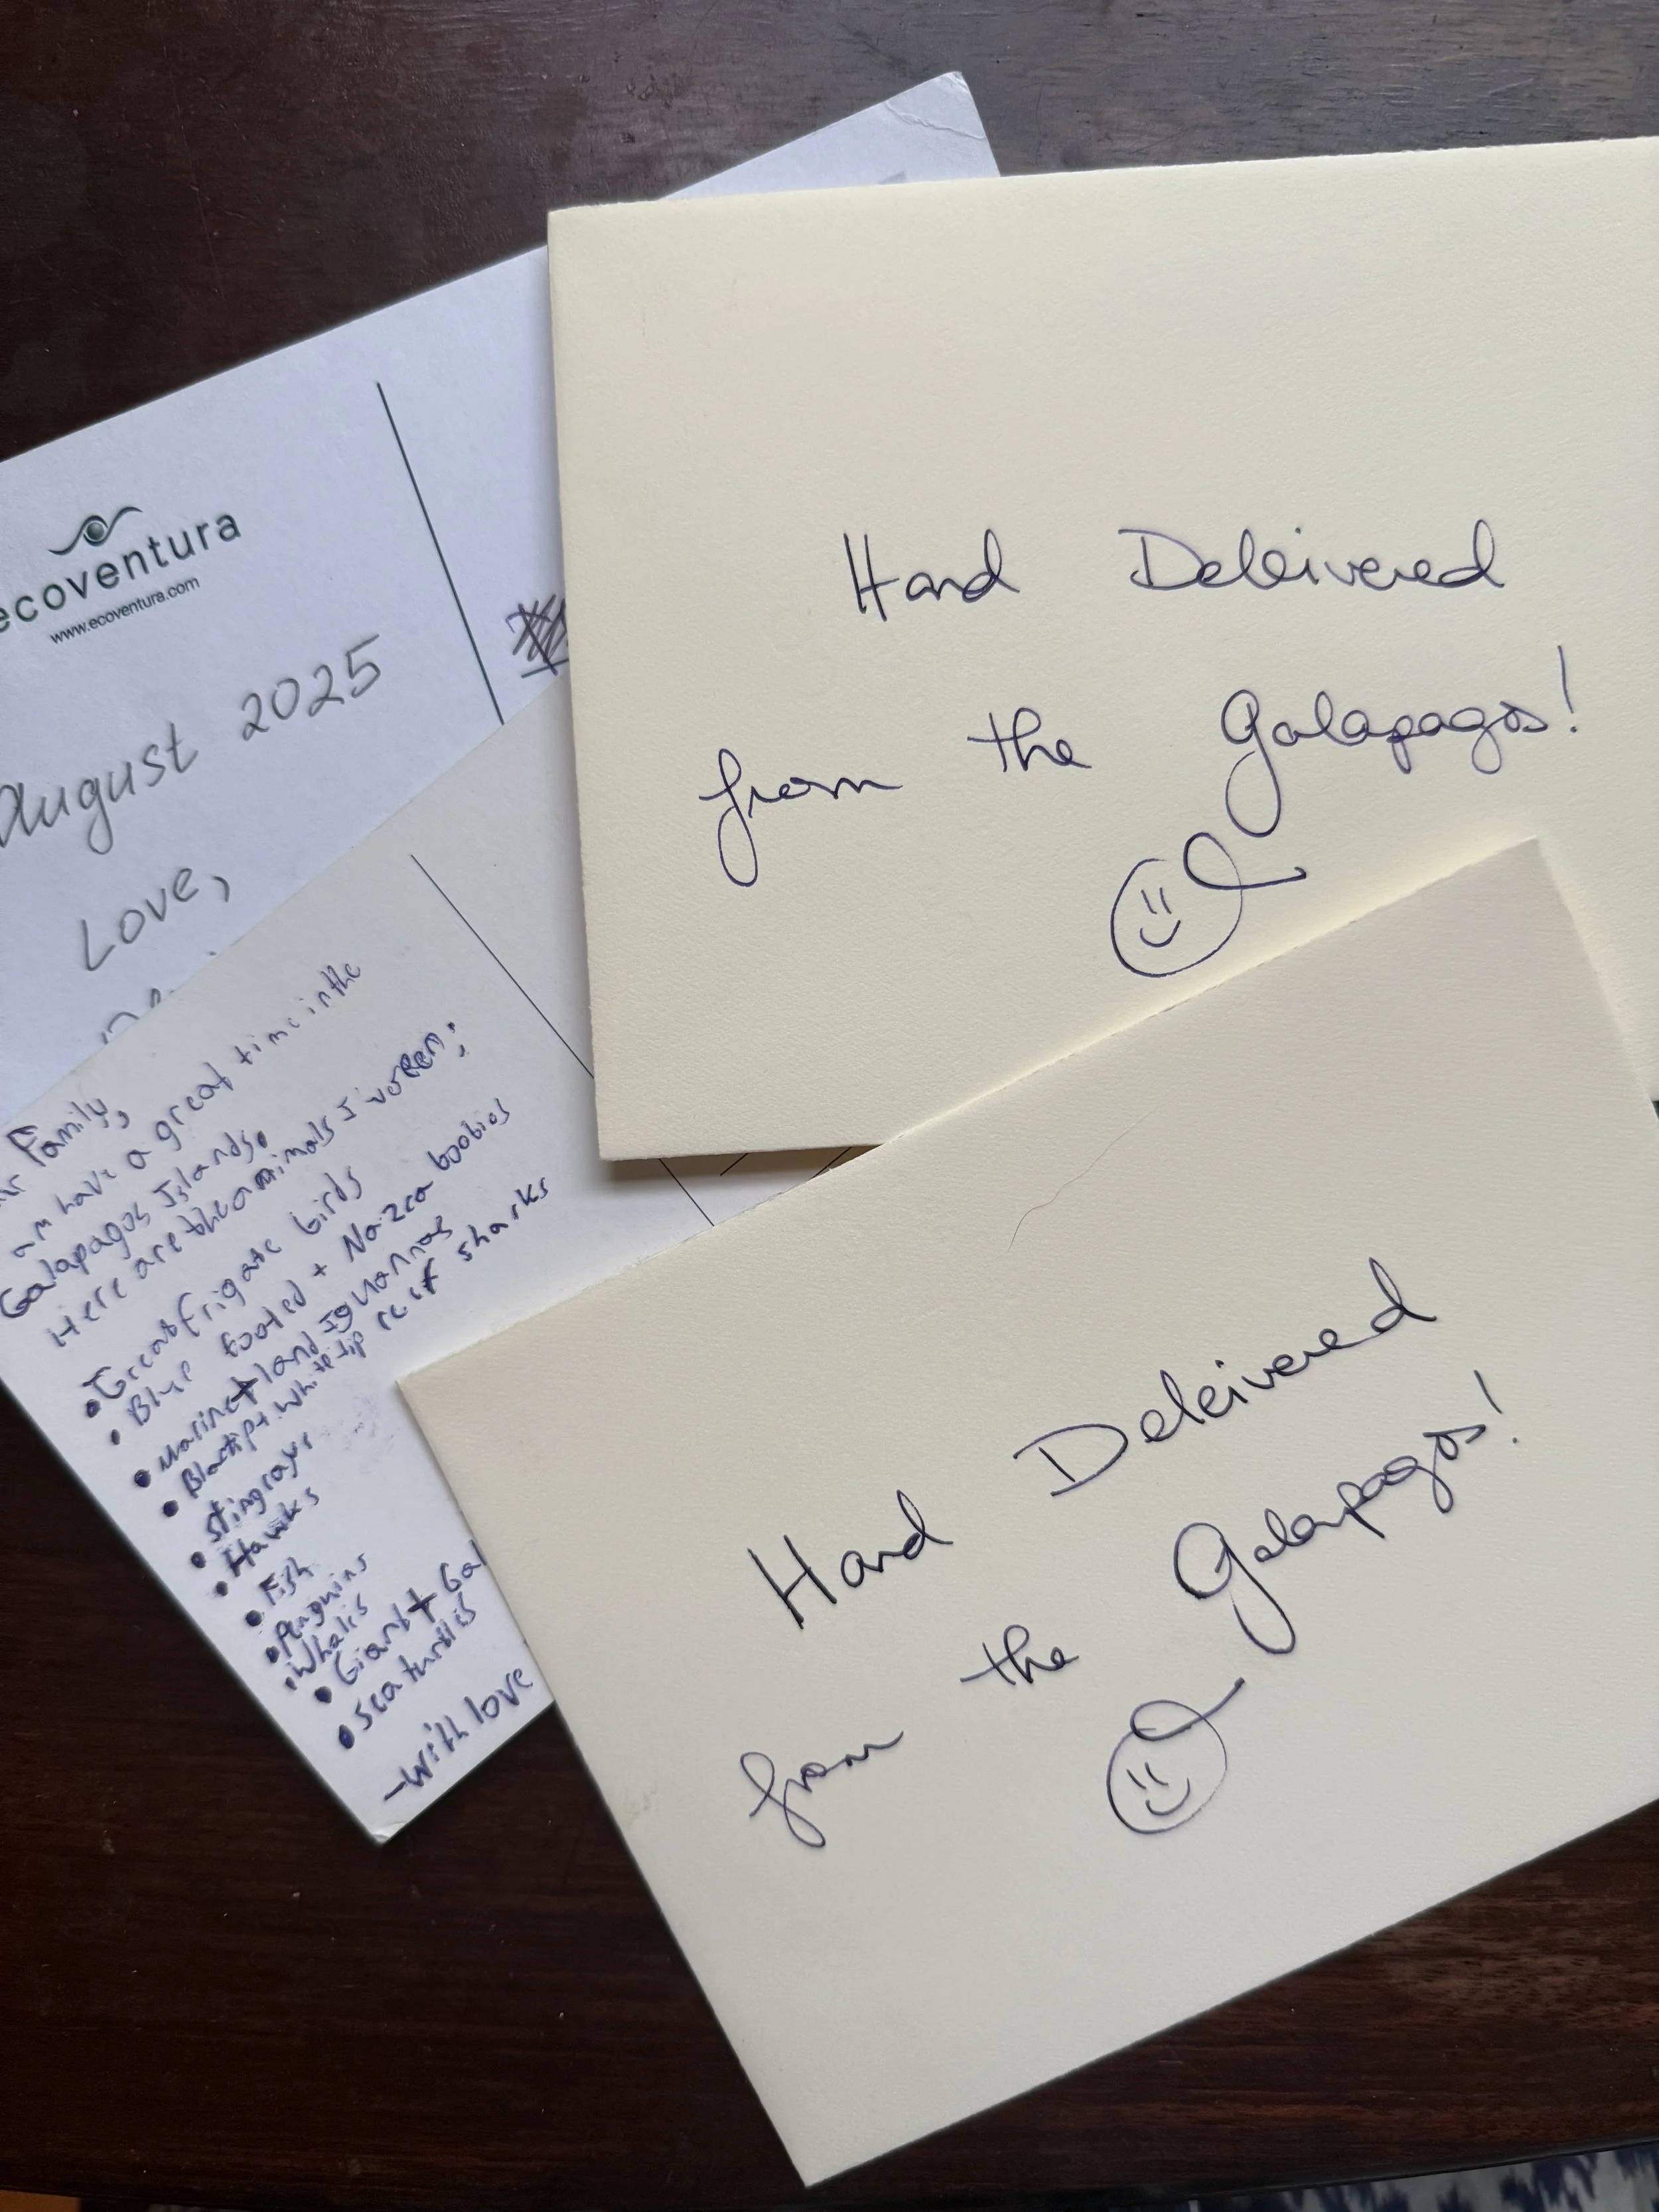 ecoventura
www.ecoventura.com
August 2025
Love,
Family,
am have a great time in the
Galapagos Islands.
Here are the animals I
• Great frigate birds
• Blue footed + Nazca boobies
• Marine + land Iguannas
• Blacktip + White tip reef sharks
• Stingrays
• Hawks
• Fish
• Penguins
• Whales
• Giant + Gal
• Sea turtles
-With love
Hand Delivered
from the Galapagos!
Hand Delivered
from the Galapagos!